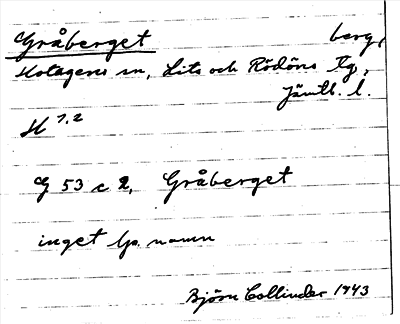 Gråberget berg,
Hotagens sn, Lits och Rödöns tg,
Jämtl. l.
H 7.2
G 53 c 2, Gråberget
inget lp. namn
Björn Collinder 1943